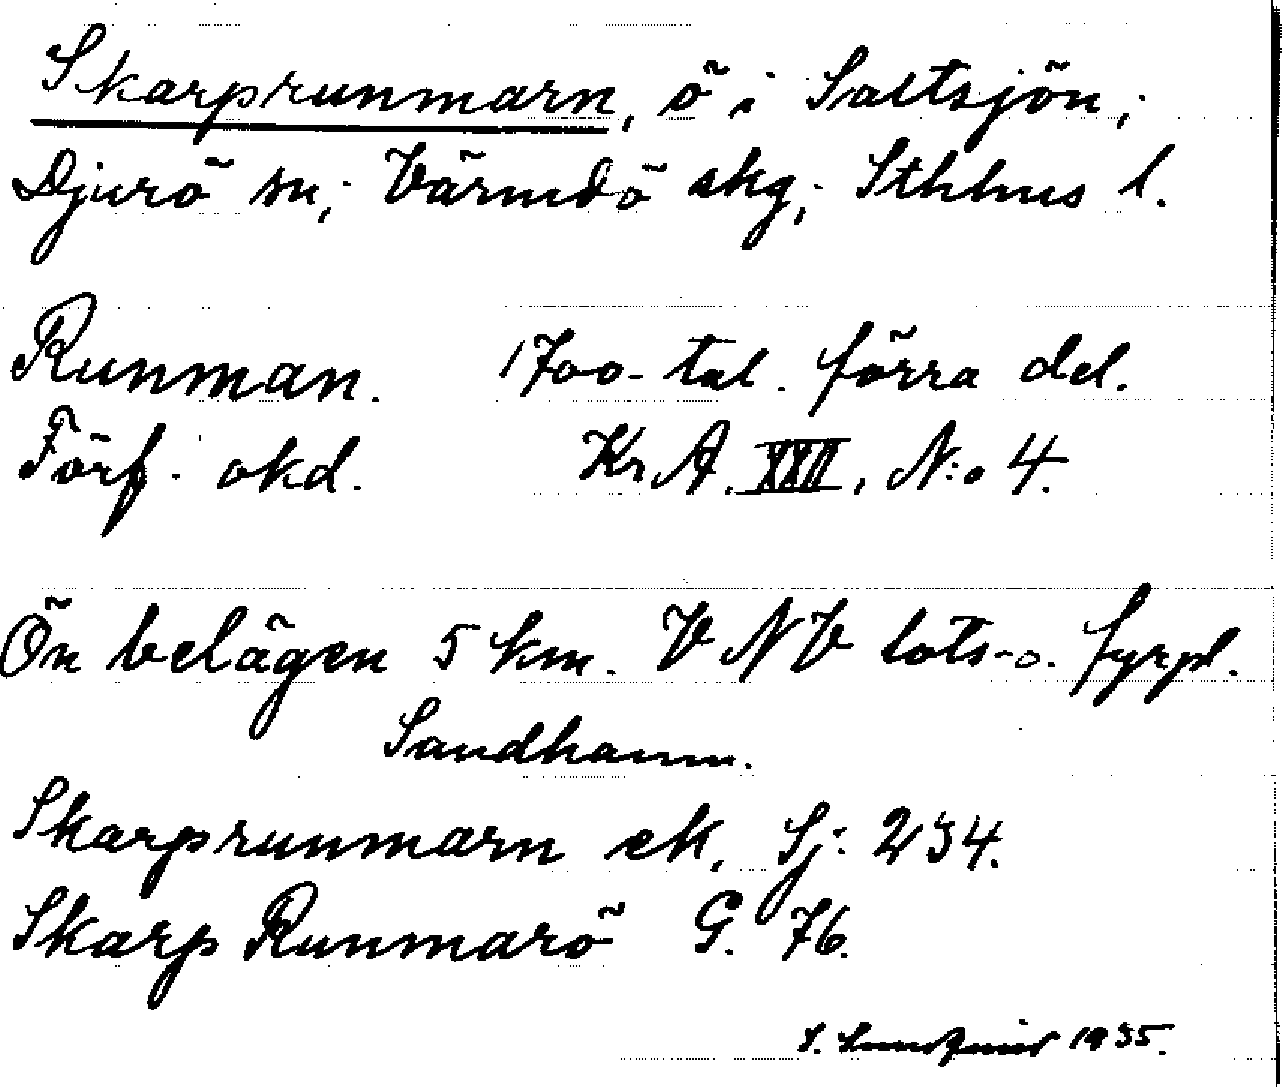 Skarprunmarn, ö i Saltsjön;
Djurö sn; Värmdö skg; Sthlms l.
Runman. 1700-tal. förra del.
Förf. okd. Kr. A. XXII, N:o 4.
Ön belägen 5 km. V NV lots- o. fyrpl.
Sandhamn.
Skarprunmarn ek. Sj: 234.
Skarp Runmarö G. 76.
S. Lundqvist 1935.